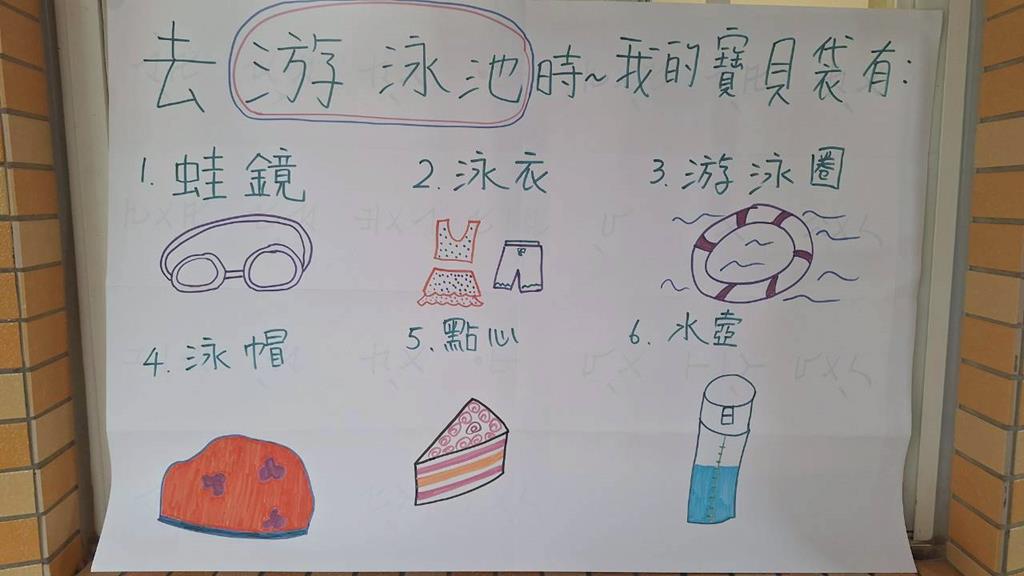 去游泳池時~我的寶貝袋有:
1. 蛙鏡 2. 泳衣 3. 游泳圈
4. 泳帽 5. 點心 6. 水壺